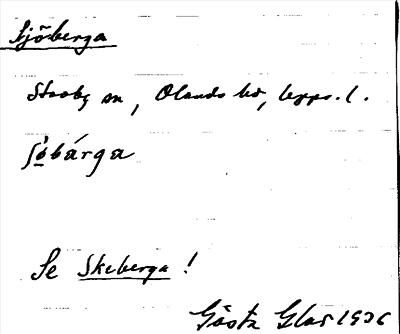 Sjöberga
Stavby sn, Olands hd, Upps. l.
Se Skeberga!
Gösta Glas 1936